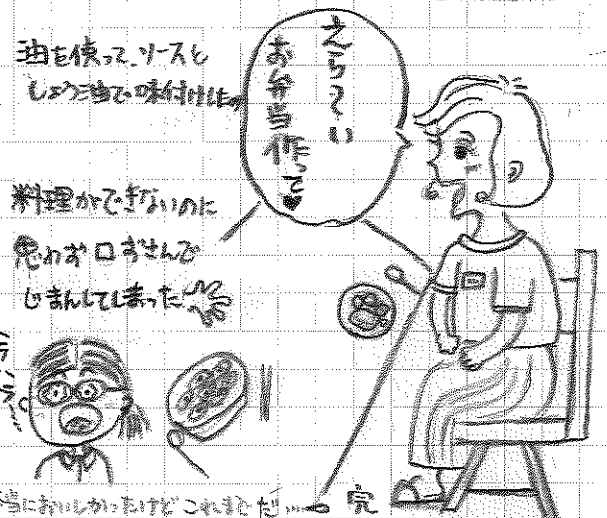 油を使って、ソースと
しょう油で味付けした
えら〜い
お弁当作って♥
料理ができないのに
思わず口ずさんで
じまんしてしまった
当においしかったけどこれまでだ……完